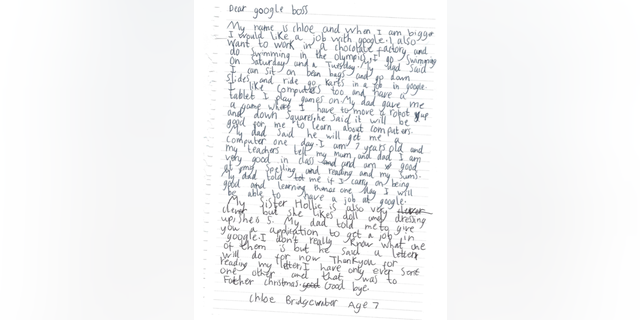 Dear google boss
My name is Chloe and when I am bigger
I would like a job with google. I also
want to work in a chocolate factory and
do swimming in the olympics. I go swimming
On Saturday and a Tuesday. My dad said
I can sit on bean bags and go down
slides and ride go karts in a job in google.
I like computers too and have a
tablet I play games on. My dad gave me
a game where I have to move a robot up
and down squares, he said it will be
good for me to learn about computers.
My dad said he will get me a
computer one day. I am 7 years old and
my teachers tell my mum and dad I am
very good in class and am good
at my spelling and reading and my sums.
My dad told me if I carry on being
good and learning then one day I will
be able to have a job at google.
My sister Hollie is also very
clever but she likes doll and dressing
up, she's 5. My dad told me to give
you a application to get a job in
google. I don't really know what one
of them is but he said a letter
will do for now. Thank you for
reading my letter, I have only ever sent
one other and that was to
Father christmas. Good bye.
Chloe Bridgewater Age 7